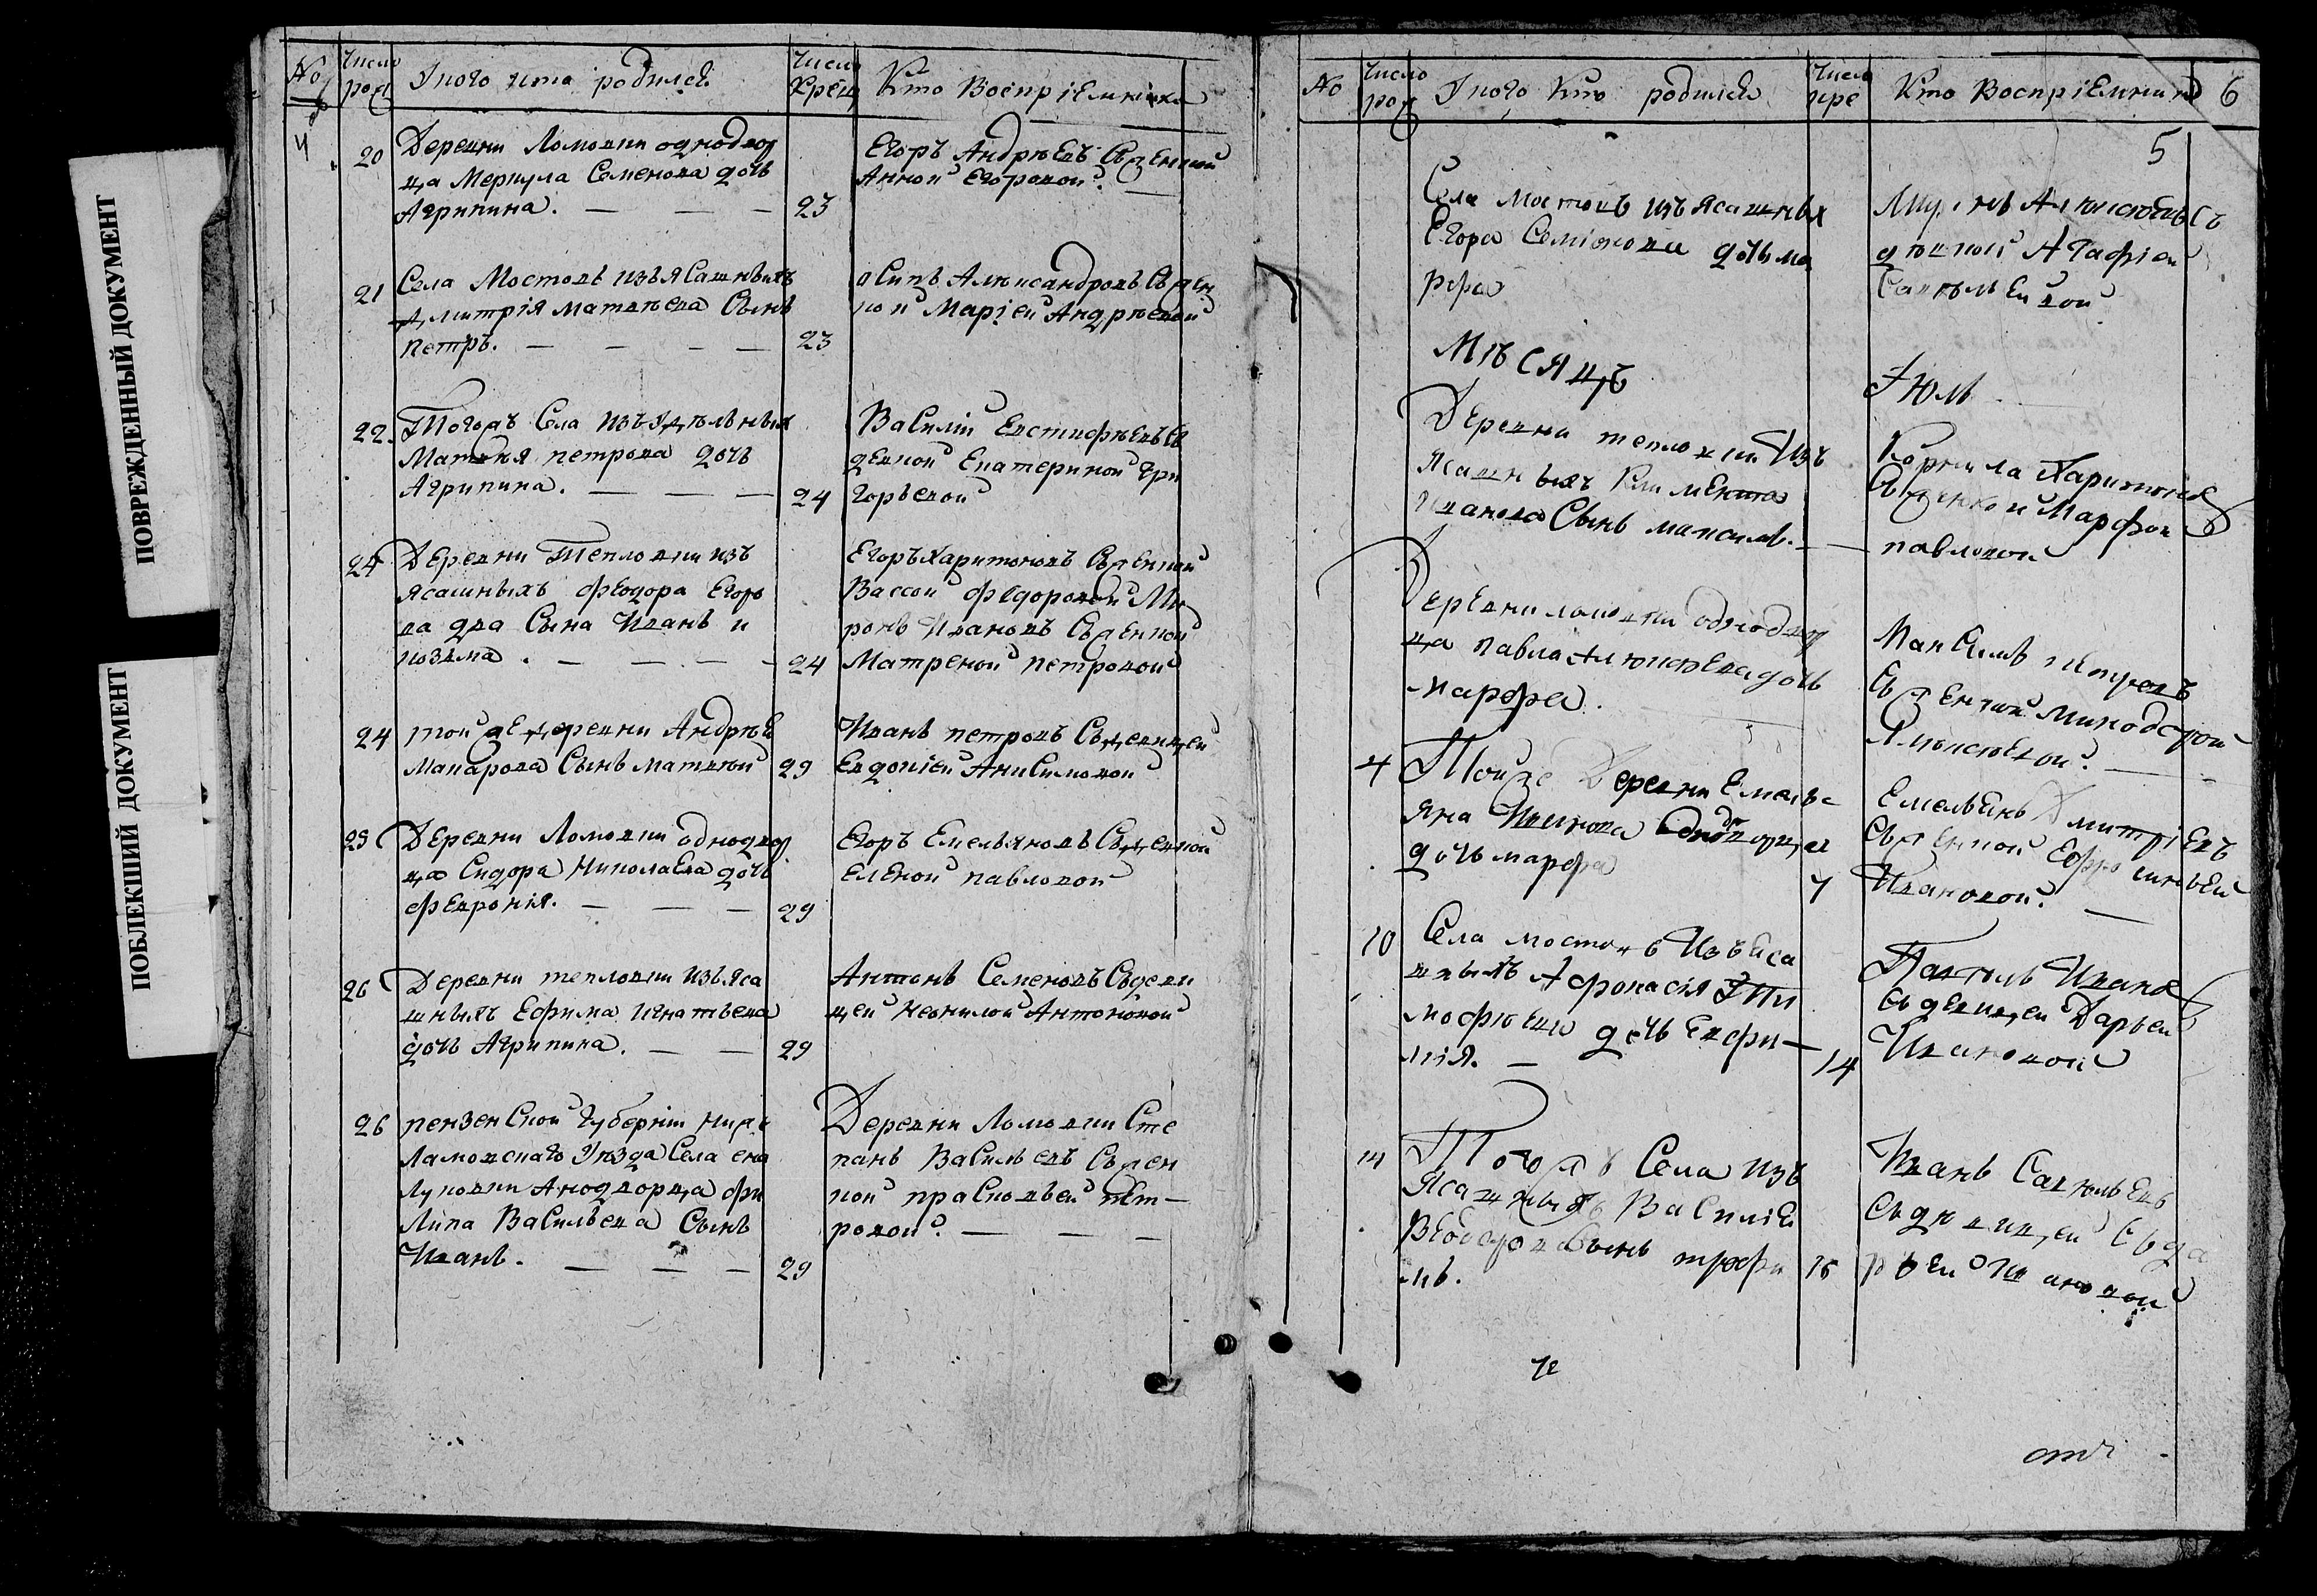 ПОВРЕЖДЕННЫЙ ДОКУМЕНТ
ПОБЛЕКШИЙ ДОКУМЕНТ
No
Число
рож
Укого кто родился
Число
Крещ
Кто Воспріемники
Ч
20
Деревни Ломовки однодвор
ца Меркула Семенова дочь
Агрипина. — — —
23
Егоръ Андрѣевъ Сженкой
Анной Егоровой. —
21
Села Мостовъ изъ ясашныхъ
Дмитрія Матвѣева Сынъ
петръ. — — — —
23
осипъ Александровъ Сжен
кой Маріей Андрѣевой
22.
Тогожъ Села изъ Удѣльныхъ
Матвѣя петрова дочь
Агрипина. — — —
24
Василіи Евстифѣевъ Съ
девкой Екатериной Гри
горьевой
24
Деревни Тепловки изъ
ясашныхъ феодора Егоро
ва два Сына Иванъ и
козьма. — — — —
24
Егоръ Харитоновъ Сженкой
Вассой федоровой Ми
ронъ Ивановъ Сженкой
Матреной петровой
24
той же деревни Андрѣя
Макарова Сынъ матвѣй
29
Иванъ петровъ Съдевицей
Евдокіей Анисимовой
25
Деревни Ломовки однодвор
ца Сидора Николаева дочь
февронія. — — —
29
Егоръ Емельяновъ Съдевкой
Еленой павловой
26
Деревни тепловки изъ яса
шныхъ Ефима игнатьева
дочь Агрипина. — —
29
Антонъ Семеновъ Съдеви
цей неонилой Антоновой
26
пензенской губерніи нижъ
Ламовскаго Уѣзда Села
Аднодворца фи
липа Васильева Сынъ
Иванъ. — — —
29
Деревни Ломовки Сте
панъ Васильевъ Сжен
кой прасковьей пет-
ровой. — — —
No
Число
рож
Укого Кто родился
Число
кре
Кто Воспріемники
6
5
Села Мостовъ изъ ясашныхъ
Егора Семіонова дочь ма
рфа
Алексѣевъ Съ
девкой Агафіей
Савельевной
Мѣсяцъ
Іюль
Деревни тепловки Изъ
ясашныхъ Климента
Иванова Сынъ максимъ. —
Корнила Харитоновъ
Сженкой Марфой
павловой
Деревни ломовки однодвор
ца павла Алексѣева дочь
марфа.
Максимъ петровъ
Сженкой Минодорой
Алексѣевой. —
4
Тойже Деревни Емель-
яна Иванова Однодворца
дочь марфа
7
Емельянъ Дмитріевъ
Сженкой Ефросиньей
Ивановой. —
10
Села мостовъ Изъ яса
шныхъ Афонасія Ти
мофѣева дочь Евфи-
мія. —
14
Савелій Ивановъ
Съдевицей Дарьей
Ивановой
14
Тогожъ Села изъ
Ясашныхъ Василія
Ѳеодорова Сынъ трофи
мъ.
15
Иванъ Савельевъ
Съдѣвицей Съ да
рьей Ивановой